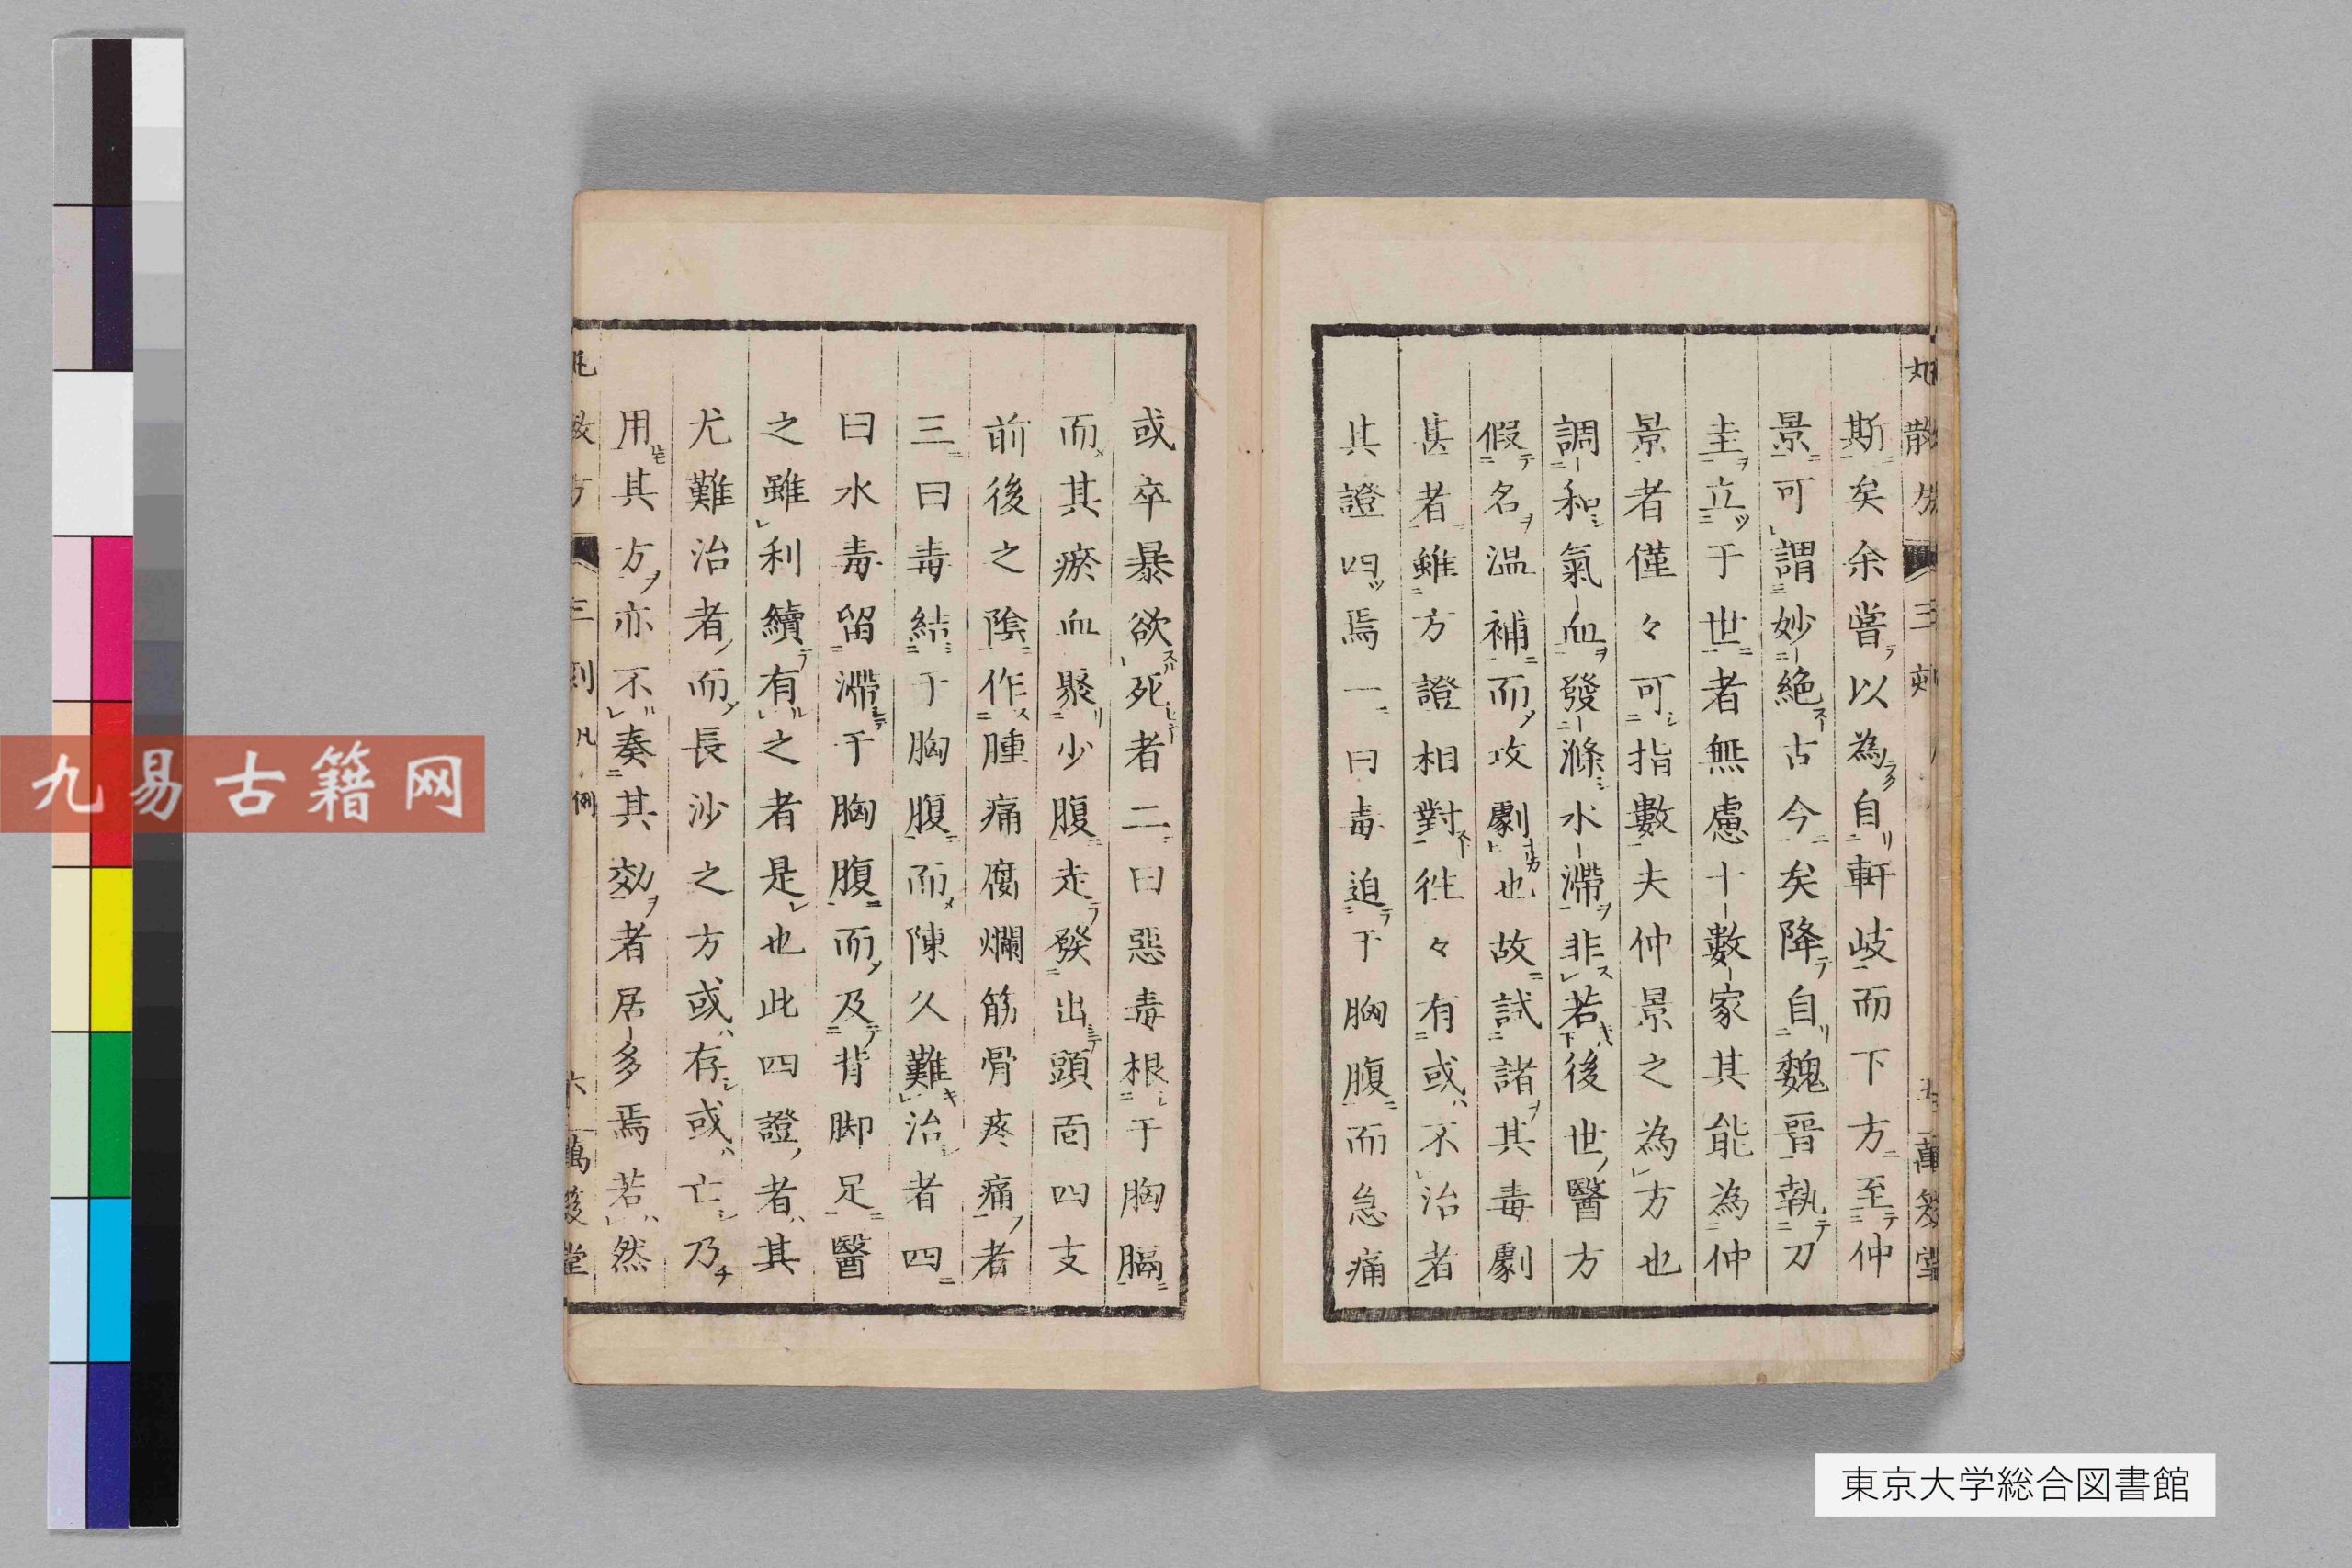 斯矣余嘗以為自軒岐而下方至仲
景可謂妙絶古今矣降自魏晉執刀
圭立于世者無慮十數家其能為仲
景者僅々可指數夫仲景之為方也
調和氣血發滌水滯非若後世醫方
假名温補而攻劇也故試諸其毒劇
甚者雖方證相對徃々有或不治者
其證四焉一曰毒迫于胸腹而急痛
或卒暴欲死者二曰惡毒根于胸膈
而其瘀血聚少腹走發出頭面四支
前後之陰作腫痛腐爛筋骨疼痛者
三曰毒結于胸腹而陳久難治者四
曰水毒留滯于胸腹而及背脚足醫
之雖利續有之者是也此四證者其
尤難治者而長沙之方或存或亡乃
用其方亦不奏其効者居多焉若然
九易古籍网
東京大学総合図書館